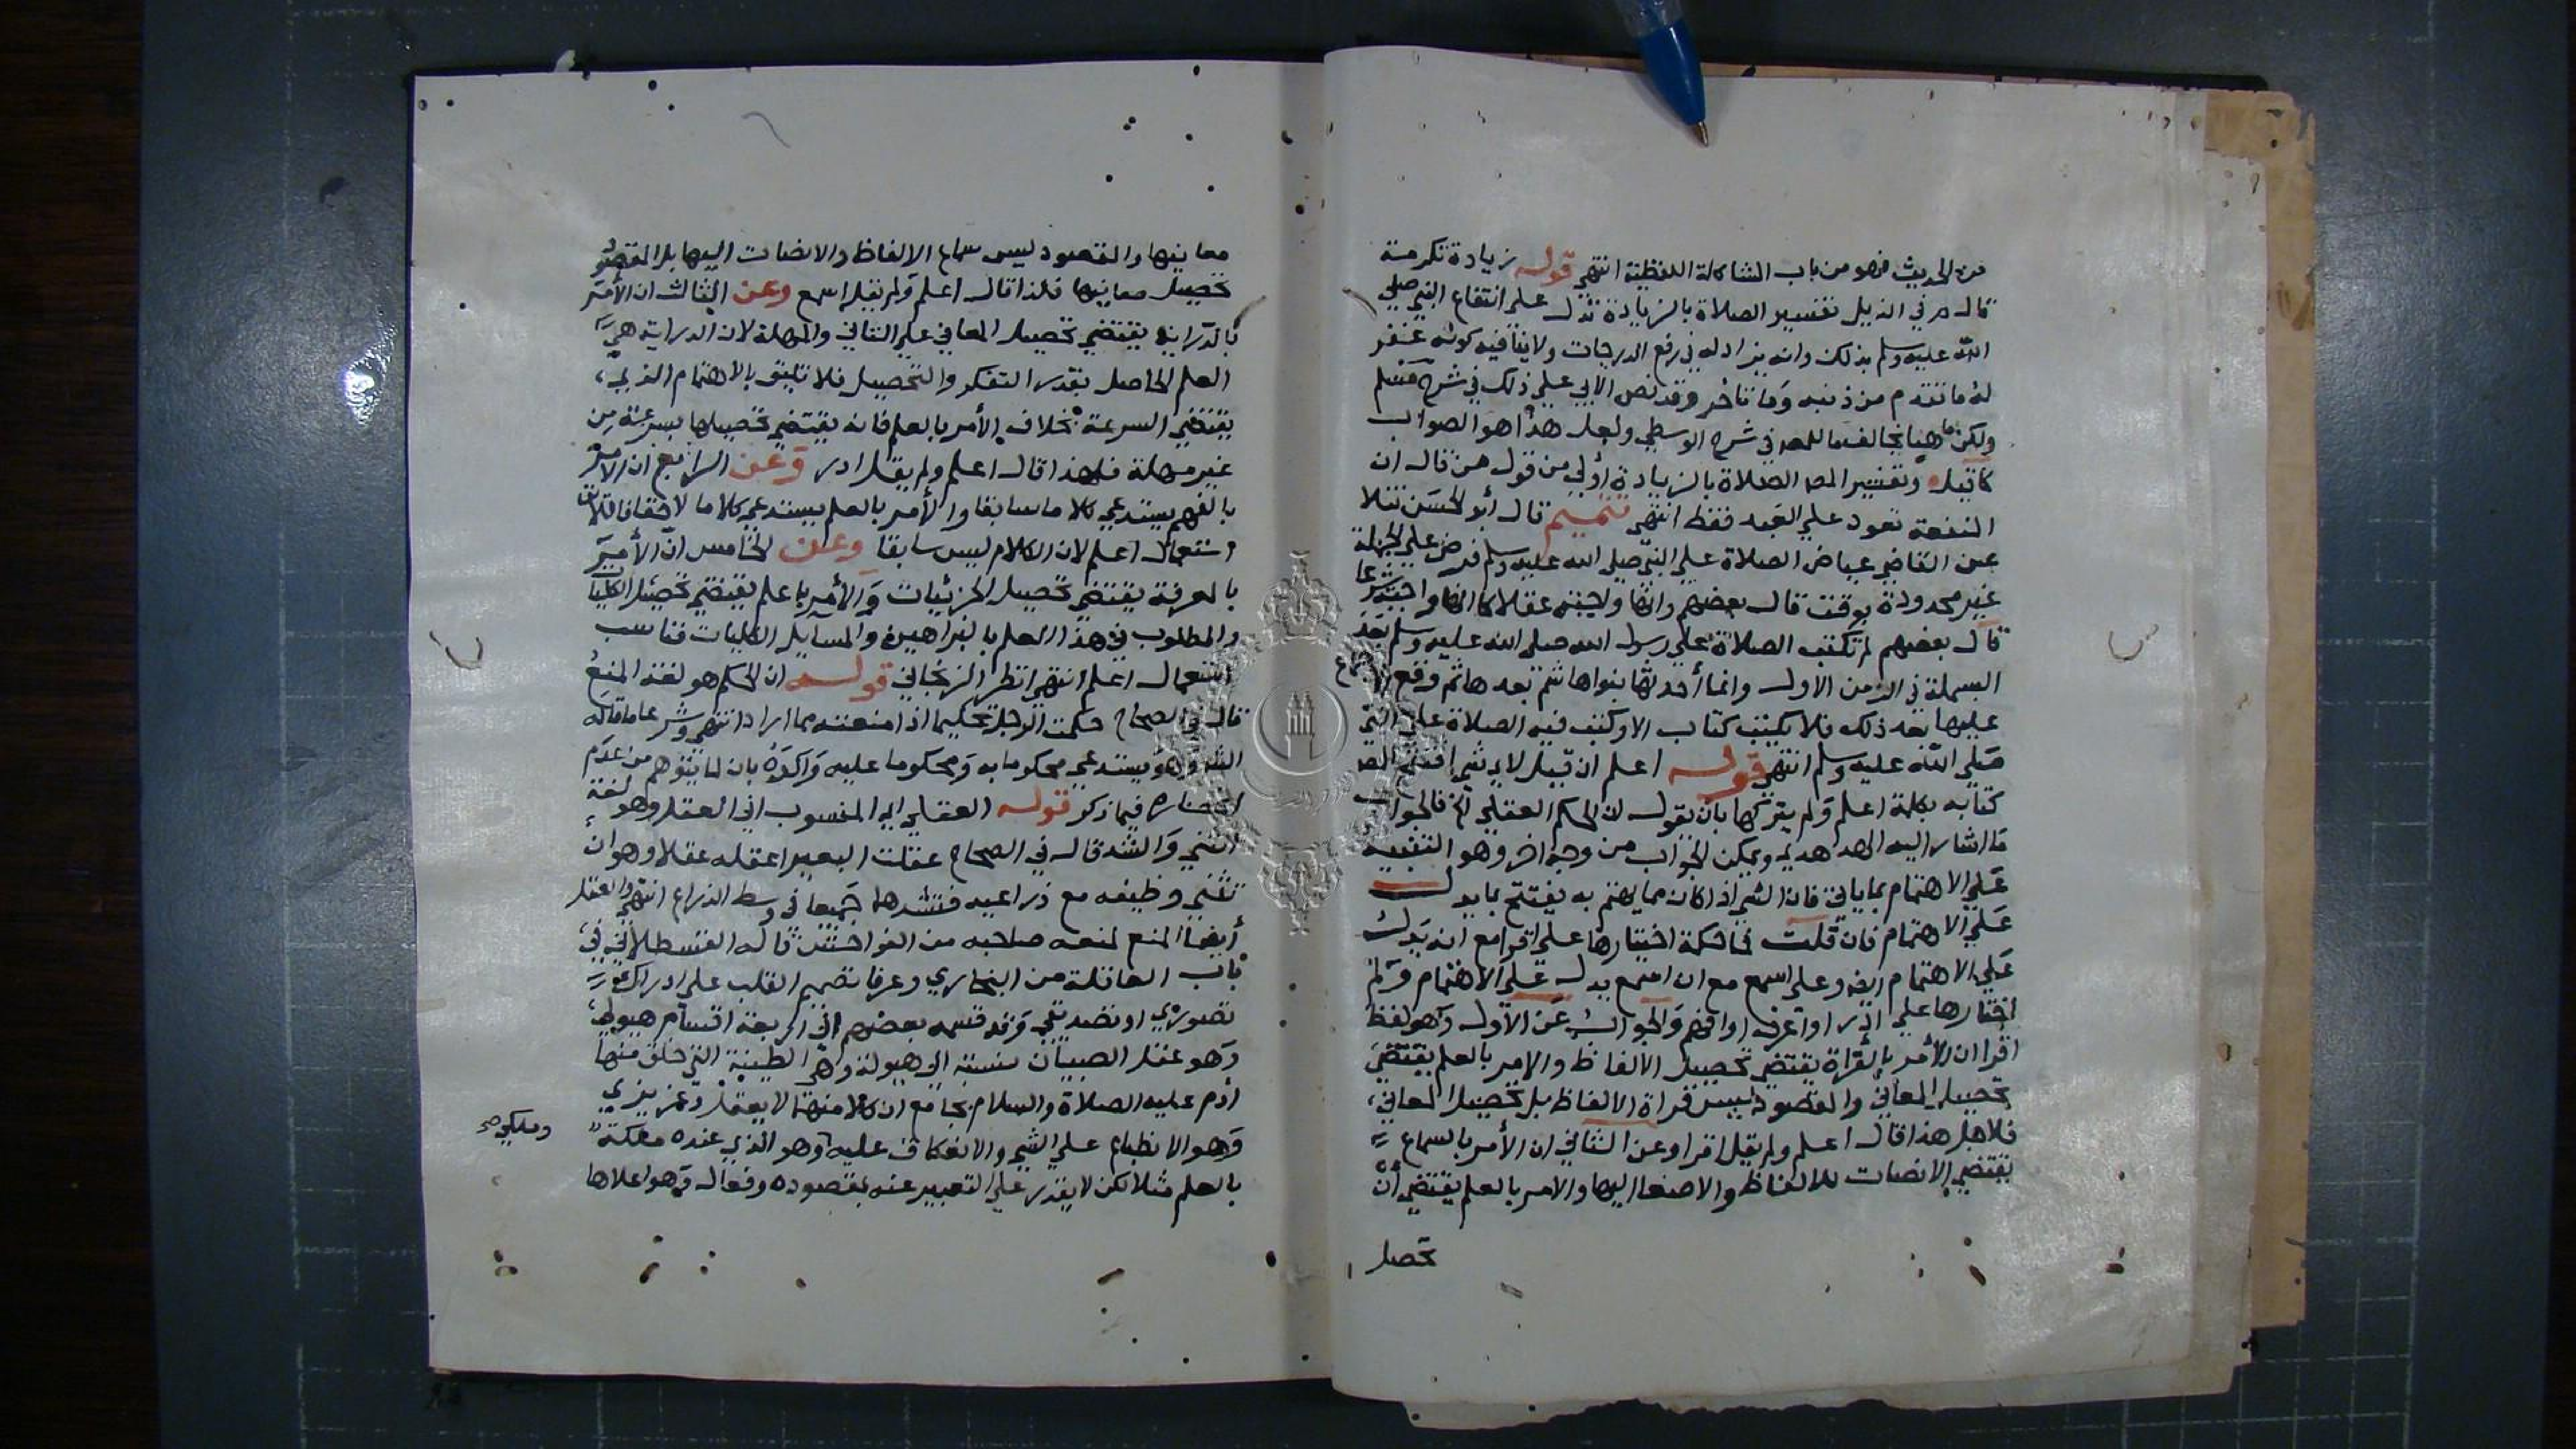 من الحديث فهو من باب المشاكلة اللفظية انتهى قوله زيادة تكرمة
قال م في الذيل تفسير الصلاة بالزيادة تدل على انتفاع النبي صلى
الله عليه وسلم بذلك وانه يزاد له في رفع الدرجات ولا ينافيه كونه غفر
له ما تقدم من ذنبه وما تاخر وقد نص الابي على ذلك في شرح مسلم
ولكن ما هنا مخالف لما للمص في شرح الوسطى ولعل هذا هو الصواب
كاتبه وتفسير المص الصلاة بالزيادة أولى من قول من قال ان
المنفعة تعود على العبد فقط انتهى تتميم قال أبو الحسن نقلا
عن القاضي عياض الصلاة على النبي صلى الله عليه وسلم فرض على الجملة
غير محدودة بوقت قال بعضهم وانها واجبة عقلا كما انها واجبة شرعا
قال بعضهم لم تكتب الصلاة على رسول الله صلى الله عليه وسلم بعد
البسملة في الزمن الاول وانما أحدثها بنواها شم بعدها ثم وقع الاجماع
عليها بعد ذلك فلا يكتب كتاب الا وكتب فيه الصلاة على النبي
صلى الله عليه وسلم انتهى قوله اعلم ان قيل لاي شي افتتح المص
كتابه بكلمة اعلم ولم يتركها بان يقول ان الحكم العقلي الخ فالجواب
ما اشار اليه الهدهدي ويمكن الجواب من وجه اخر وهو التنبيه
على الاهتمام بما ياتي فان الشي اذا كان مما يهتم به يفتتح بما يدل
على الاهتمام فان قلت فما حكمة اختيارها على اقرا مع انه يدل
على الاهتمام ايضا وعلى اسمع مع ان اسمع يدل على الاهتمام ولم
اختارها على ادر او اعرف او افهم والجواب عن الاول وهو لفظ
اقرا ان الأمر بالقراة يقتضي تحصيل الالفاظ والامر بالعلم يقتضي
تحصيل المعاني والمقصود ليس قراة الالفاظ بل تحصيل المعاني
فلاجل هذا قال اعلم ولم يقل اقرا وعن الثاني ان الأمر بالسماع
يقتضي الانصات للالفاظ والاصغا اليها والامر بالعلم يقتضي أن
تحصل
معانيها والمقصود ليس سماع الالفاظ والانصات اليها بل المقصود
تحصيل معانيها فلذا قال اعلم ولم يقل اسمع وعن الثالث ان الأمر
بالدراية يقتضي تحصيل المعاني على التاني والمهلة لان الدراية هي
العلم الحاصل بقدر التفكر والتحصيل فلا تليق بالاهتمام الذي
يقتضي السرعة بخلاف الأمر بالعلم فانه يقتضي تحصيلها بسرعة من
غير مهلة فلهذا قال اعلم ولم يقل ادر وعن الرابع ان الامر
بالفهم يستدعي كلاما سابقا والأمر بالعلم يستدعي كلاما لاحقا فاقتضى
استعمال اعلم لان الكلام ليس سابقا وعن الخامس ان الأمر
بالمعرفة يقتضي تحصيل الجزئيات والأمر باعلم يقتضي تحصيل الكليات
والمطلوب في هذا العلم بالبراهين والمسايل الكليات فناسب
استعمال اعلم انتهى انظر الزنجاني قوله ان الحكم هو لغة المنع
قال في الصحاح حكمت الرجل تحكيما اذا منعته مما اراد انتهى وشرعا ما قاله
وهو يستدعي محكوما به ومحكوما عليه واكده بان لما يتوهم من عدم
فيما ذكر قوله العقلي اي المنسوب الى العقل وهو لغة
الثني والشد قال في الصحاح عقلت البعير اعقله عقلا وهو ان
تثني وظيفه مع ذراعيه فتشدهما جميعا في وسط الذراع انتهى والعقل
أيضا المنع لمنعه صاحبه من الفواحش قاله القسطلاني في
باب العاقلة من البخاري وعرفا تصميم القلب على ادراك
تصوري او تصديقي وقد قسمه بعضهم الى اربعة اقسام هيولي
وهو عقل الصبيان نسبته الى هيولة وهي الطينة التي خلق منها
ادم عليه الصلاة والسلام بجامع ان كلا منهما لا يعقل وغريزي
وهو الانطباع على الشي والانعكاف عليه وهو الذي عنده ملكة
وملكي صح
بالعلم مثلا لكن لا يقدر على التعبير عنه بمقصوده وفعال وهو اعلاها